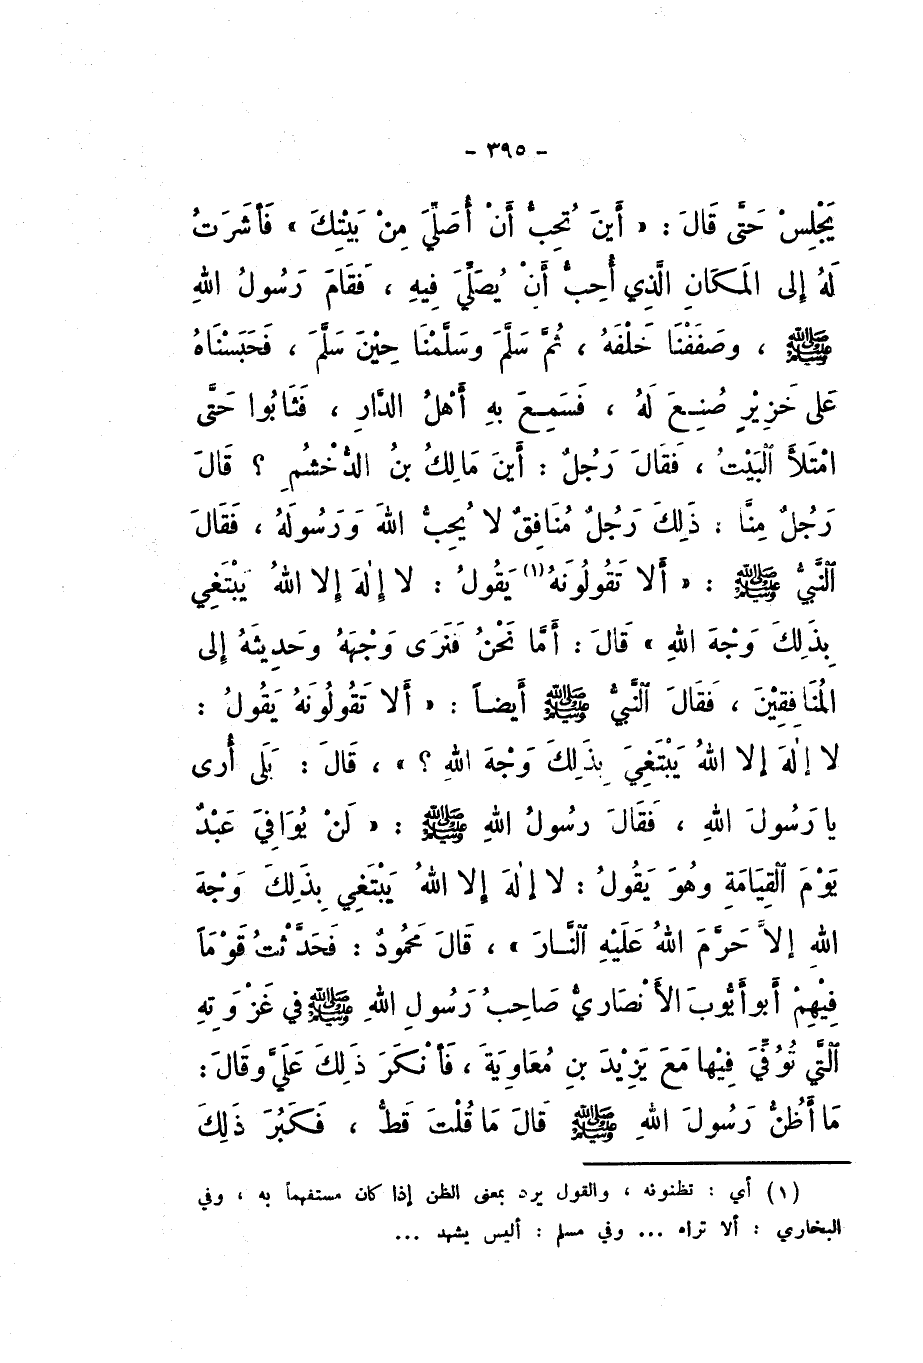 - ٣٩٥ -
يَجْلِسْ حَتَّى قَالَ : « أَينَ تُحِبُّ أَنْ أُصَلِّيَ مِنْ بَيْتِكَ » فَأَشَرَتُ
لَهُ إلى المَكَانِ الَّذِي أُحِبُّ أَنْ يُصَلِّيَ فِيهِ ، فَقَامَ رَسُولُ اللهِ
ﷺ ، وصَفَفْنَا خَلْفَهُ ، ثُمَّ سَلَّمَ وسَلَّمْنَا حِيْنَ سَلَّمَ ، فَحَبَسْنَاهُ
عَلى خَزِيْرٍ صُنِعَ لَهُ ، فَسَمِعَ بهِ أَهْلُ الدَّارِ ، فَثَابُوا حَتَّى
امْتَلأَ ٱلبَيْتُ ، فَقَالَ رَجُلٌ : أَينَ مَالِكُ بنُ الدُّخْشُمِ ؟ قَالَ
رَجُلٌ مِنَّا : ذَلِكَ رَجُلٌ مُنَافِقٌ لا يُحِبُّ اللهَ وَرَسُولَهُ ، فَقَالَ
ٱلنَّبيُّ ﷺ : « أَلا تَقُولُونَهُ (١) يَقُولُ : لا إِلٰهَ إِلا اللهُ يَبْتَغِي
بِذَلِكَ وَجْهَ اللهِ » قَالَ : أَمَّا نَحْنُ فَنَرَى وَجْهَهُ وحَدِيثَهُ إِلى
المُنَافِقِيْنَ ، فَقَالَ ٱلنَّبيُّ ﷺ أَيضاً : « أَلا تَقُولُونَهُ يَقُولُ :
لا إِلٰهَ إِلا اللهُ يَبْتَغِيَ بِذَلِكَ وَجْهَ اللهِ ؟ » ، قَالَ : بَلَى أُرى
يا رَسُولَ اللهِ ، فَقَالَ رسُولُ اللهِ ﷺ : « لَنْ يُوَافِيَ عَبْدٌ
يَوْمَ ٱلقِيَامَةِ وهُوَ يَقُولُ : لا إلٰهَ إِلا اللهُ يَبْتَغِي بِذَلِكَ وَجْهَ
اللهِ إلاَّ حَرَّمَ اللهُ عَلَيْهِ ٱلنَّـارَ » ، قَالَ مَحْمُودٌ : فَحَدَّثْتُ قَوْمَاً
فِيْهِمْ أَبوأَيُّوبَ الأَنْصَارِيُّ صَاحِبُ رَسُولِ اللهِ ﷺ في غَزْوَتِهِ
ٱلتَّي تُوُفِّيَ فِيْها مَعَ يَزِيْدَ بنِ مُعَاوِيَةَ ، فَأَنْكَرَ ذَلِكَ عَلَيَّ وقَالَ :
مَا أَظُنُّ رَسُولَ اللهِ ﷺ قَالَ مَا قُلْتَ قَطُّ ، فَكَبُرَ ذَلِكَ
(١) أي : تظنونه ، والقول يرد بمعنى الظن إذا كان مستفهماً به ، وفي
البخاري : ألا تراه ... وفي مسلم : أليس يشهد ...